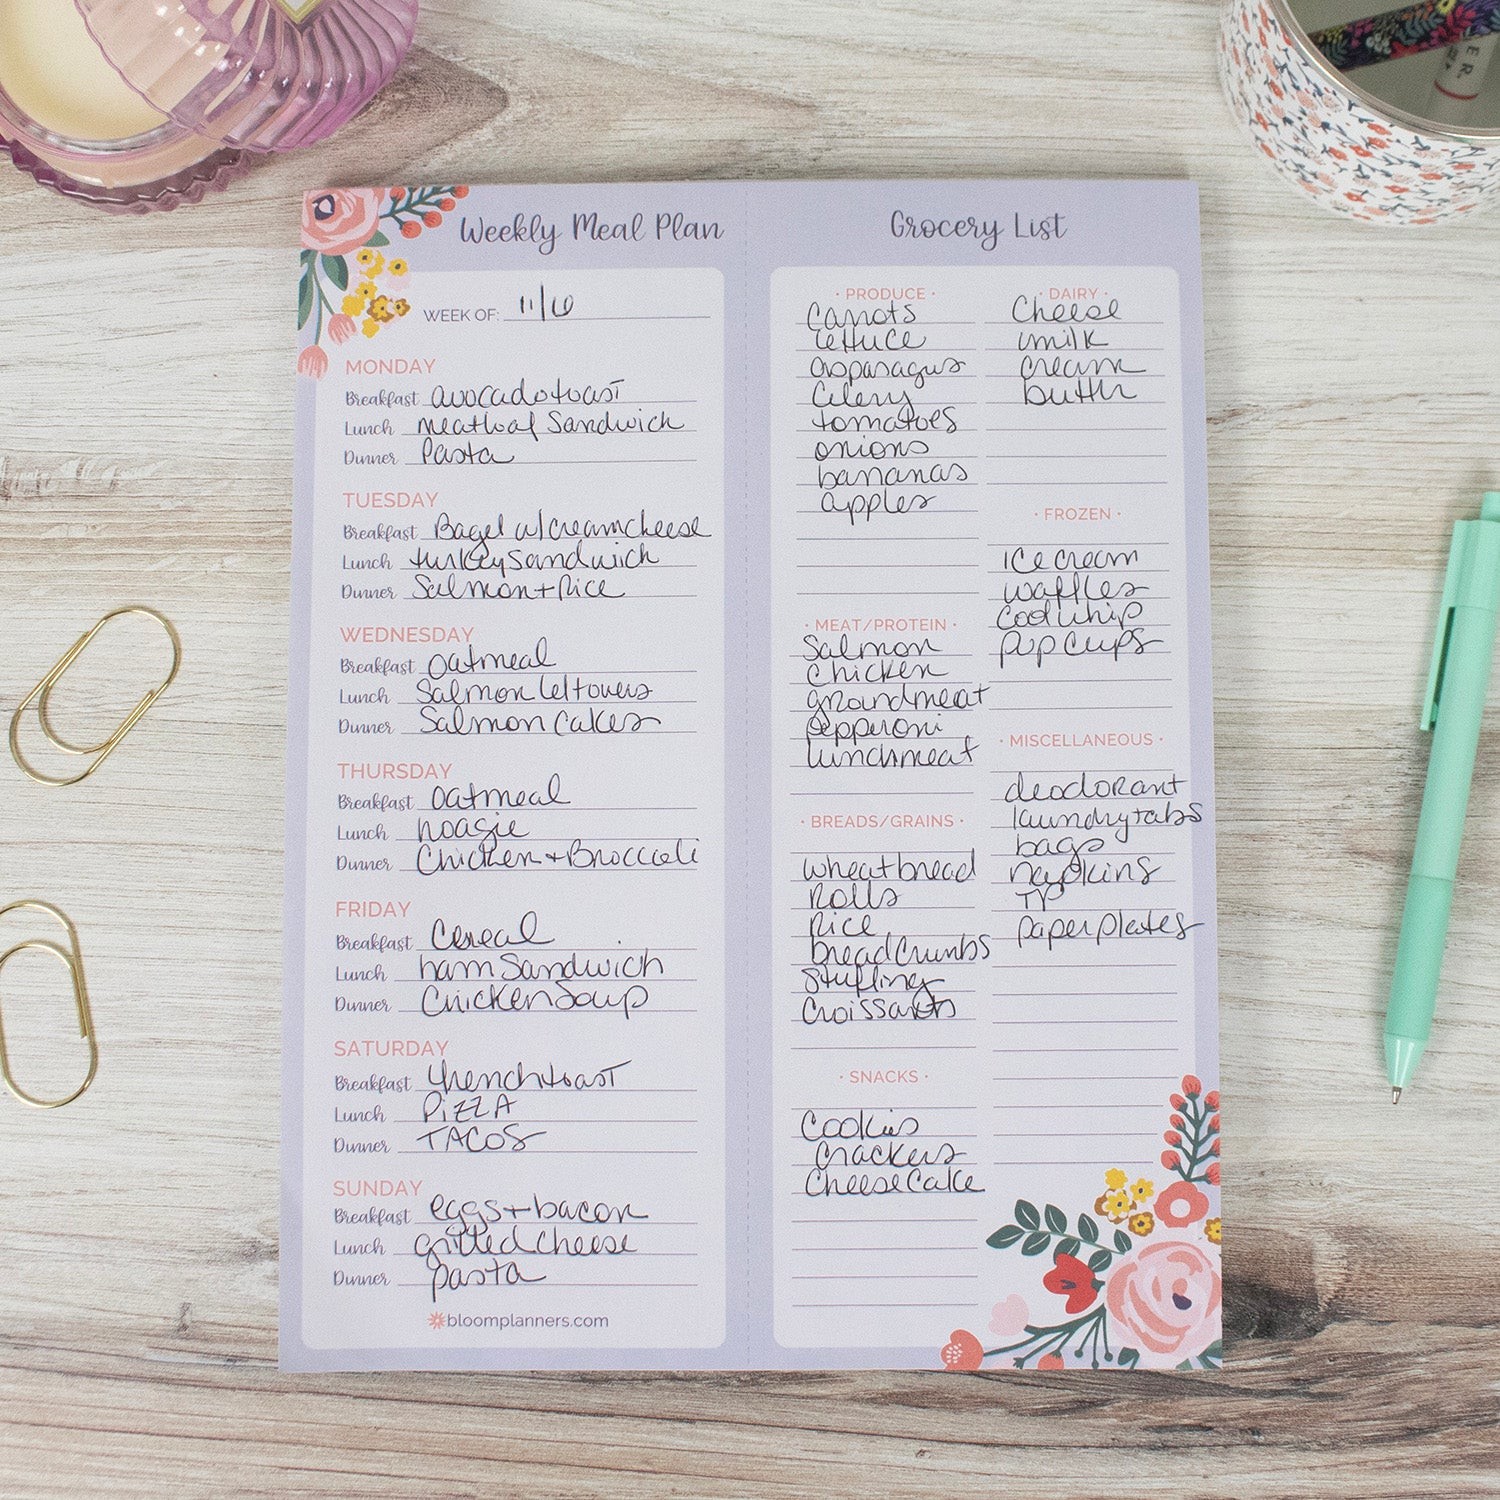 Weekly Meal Plan
WEEK OF: 11/6
MONDAY
Breakfast avocado toast
Lunch meatloaf Sandwich
Dinner Pasta
TUESDAY
Breakfast Bagel w/ cream cheese
Lunch turkey Sandwich
Dinner Salmon + Rice
WEDNESDAY
Breakfast oatmeal
Lunch Salmon leftovers
Dinner Salmon Cakes
THURSDAY
Breakfast oatmeal
Lunch hoagie
Dinner Chicken + Broccoli
FRIDAY
Breakfast Cereal
Lunch ham Sandwich
Dinner Chicken Soup
SATURDAY
Breakfast french toast
Lunch PIZZA
Dinner TACOS
SUNDAY
Breakfast eggs + bacon
Lunch grilled cheese
Dinner pasta
bloomplanners.com
Grocery List
· PRODUCE ·
Carrots
lettuce
asparagus
Celery
tomatoes
onions
bananas
apples
· MEAT/PROTEIN ·
Salmon
Chicken
ground meat
pepperoni
lunchmeat
· BREADS/GRAINS ·
wheat bread
Rolls
Rice
bread Crumbs
Stuffing
Croissants
· SNACKS ·
Cookies
Crackers
Cheese Cake
· DAIRY ·
Cheese
milk
cream
butter
· FROZEN ·
ice cream
waffles
cool whip
pup cups
· MISCELLANEOUS ·
deodorant
laundry tabs
bags
napkins
TP
paper plates